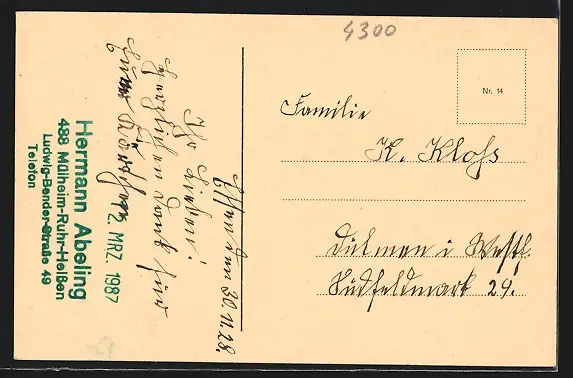 4300
Nr. 14
Familie
K. Kloß
Dülmen i Westf.
Südfeldmark 29.
Essen den 30.11.28.
Ihr Lieben!
Herzlichen Dank für
Hermann Abeling
488 Mülheim-Ruhr-Heißen
Ludwig-Bender-Straße 49
Telefon
12. MRZ. 1987